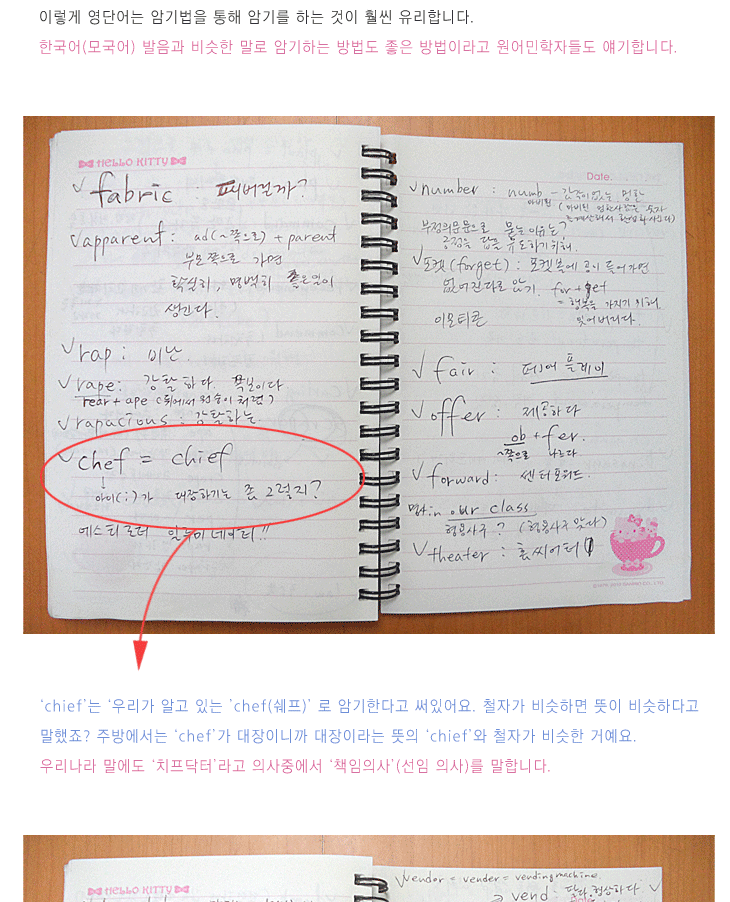 이렇게 영단어는 암기법을 통해 암기를 하는 것이 훨씬 유리합니다.
한국어(모국어) 발음과 비슷한 말로 암기하는 방법도 좋은 방법이라고 원어민학자들도 얘기합니다.
HELLO KITTY
fabric : 찌버릴까?
apparent : ad(~쪽으로) + parent
부모쪽으로 가면
확실히, 명백히 좋은일이
생긴다.
rap : 비난.
rape: 강탈하다
rear + ape (뒤에서 원숭이처럼?)
rapacious : 강탈하는
chef = chief
아이(i)가 대장하기는 좀 그렇지?
에스티로더 일루미네이터!!
Date.
number : numb - 감각이없는 멍한
마비된
부정의문문으로 묻는이유는?
긍정을 답을 유도하기위해.
포켓(forget) : 포켓속에 돈이 들어가면
없어진다로 암기. for + get
= 행복을 가지기 위해
잊어버리다.
이모티콘
fair : 페어플레이
offer : 제공하다
ob + fer.
~쪽으로 나르다
forward : 센터포워드.
명사 in our class
형용사구? (형용사구 맞다)
theater : 홈씨어터
'chief'는 '우리가 알고 있는 'chef(쉐프)' 로 암기한다고 써있어요. 철자가 비슷하면 뜻이 비슷하다고
말했죠? 주방에서는 'chef'가 대장이니까 대장이라는 뜻의 'chief'와 철자가 비슷한 거예요.
우리나라 말에도 '치프닥터'라고 의사중에서 '책임의사'(선임 의사)를 말합니다.
HELLO KITTY
vendor = vender = vending machine
vend :